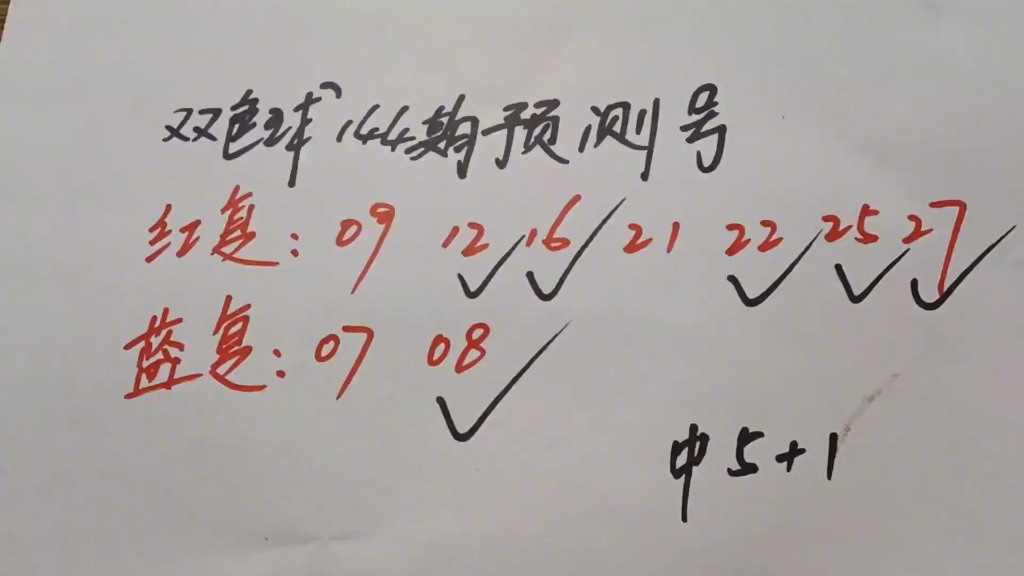 双色球144期预测号
红复: 09 12 16 21 22 25 27
蓝复: 07 08
中5+1